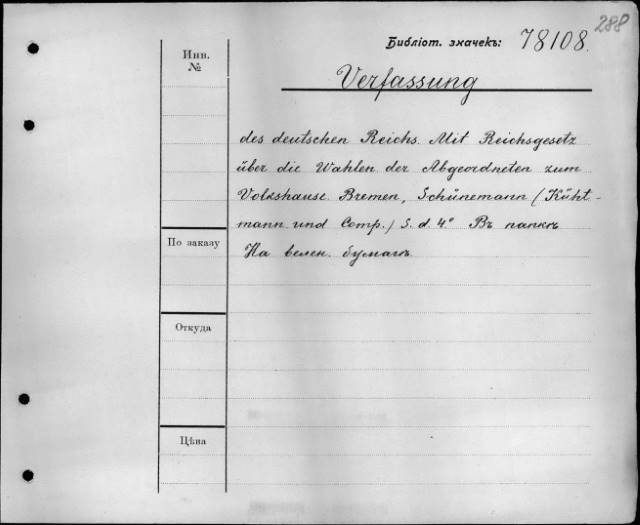 288
Библіот. значекъ: 78108.
Инв.
№
Verfassung
des deutschen Reichs. Mit Reichsgesetz
über die Wahlen der Abgeordneten zum
Volkshause. Bremen, Schünemann (Küht-
mann und Comp.) S. d. 4° Въ папкѣ
На велен. бумагѣ.
По заказу
Откуда
Цѣна